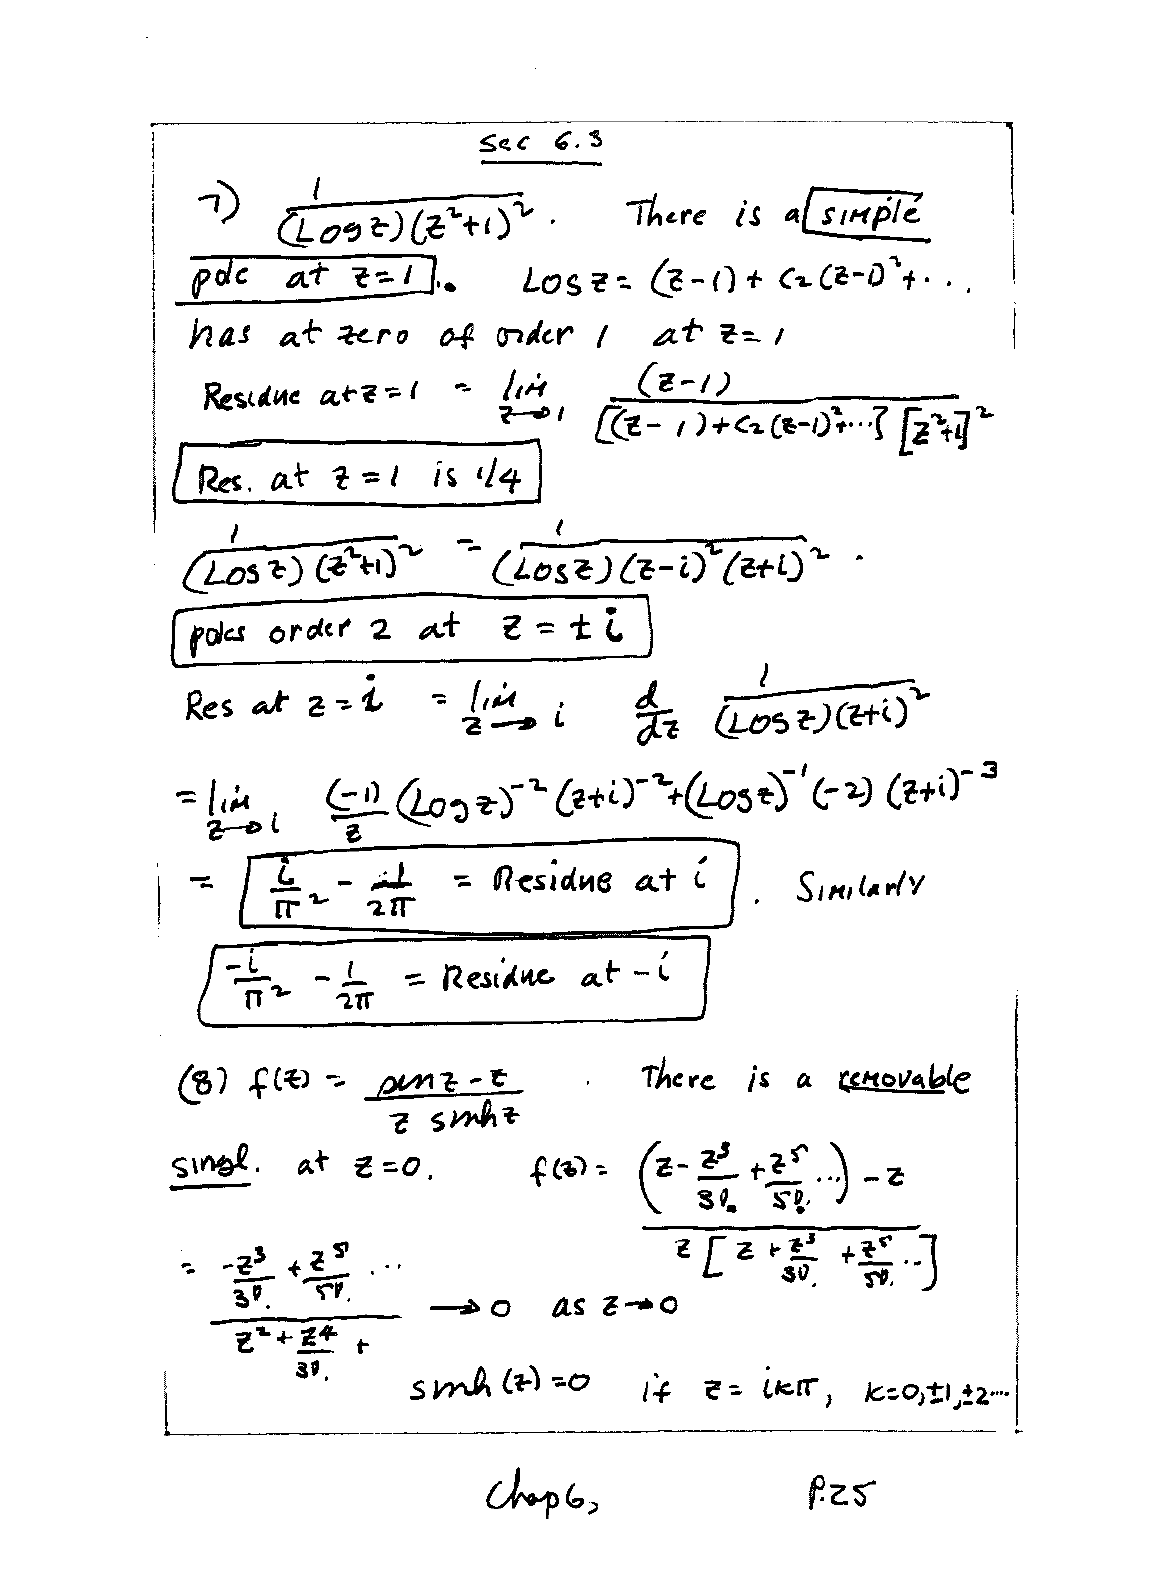 Sec 6.3
7) 1/((Log z)(z²+1)²) . There is a simple
pole at z=1. Log z = (z-1) + C₂(z-1)²+...
has at zero of order 1 at z=1
Residue at z=1 = lim z→1 (z-1)/([(z-1)+C₂(z-1)²+...] [z²+1]²)
Res. at z=1 is 1/4
1/((Log z)(z²+1)²) = 1/((Log z)(z-i)²(z+i)²) .
poles order 2 at z = ± i
Res at z=i = lim z→i d/dz 1/((Log z)(z+i)²)
= lim z→i (-1)/z (Log z)⁻² (z+i)⁻² + (Log z)⁻¹ (-2) (z+i)⁻³
= i/π² - 1/2π = Residue at i . Similarly
-i/π² - 1/2π = Residue at -i
(8) f(z) = (sin z - z)/(z sinh z) . There is a removable
singl. at z=0. f(z) = ((z - z³/3! + z⁵/5! ...) - z)/(z [z + z³/3! + z⁵/5! ...])
= (-z³/3! + z⁵/5! ...)/(z² + z⁴/3! +) → 0 as z→0
sinh (z) = 0 if z = ikπ, k=0,±1,±2....
Chap 6, p.25